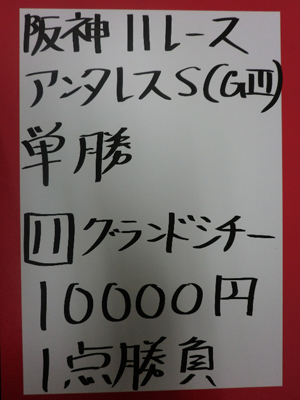 阪神11レース
アンタレスS(GⅢ)
単勝
11 グランドシチー
10000円
1点勝負